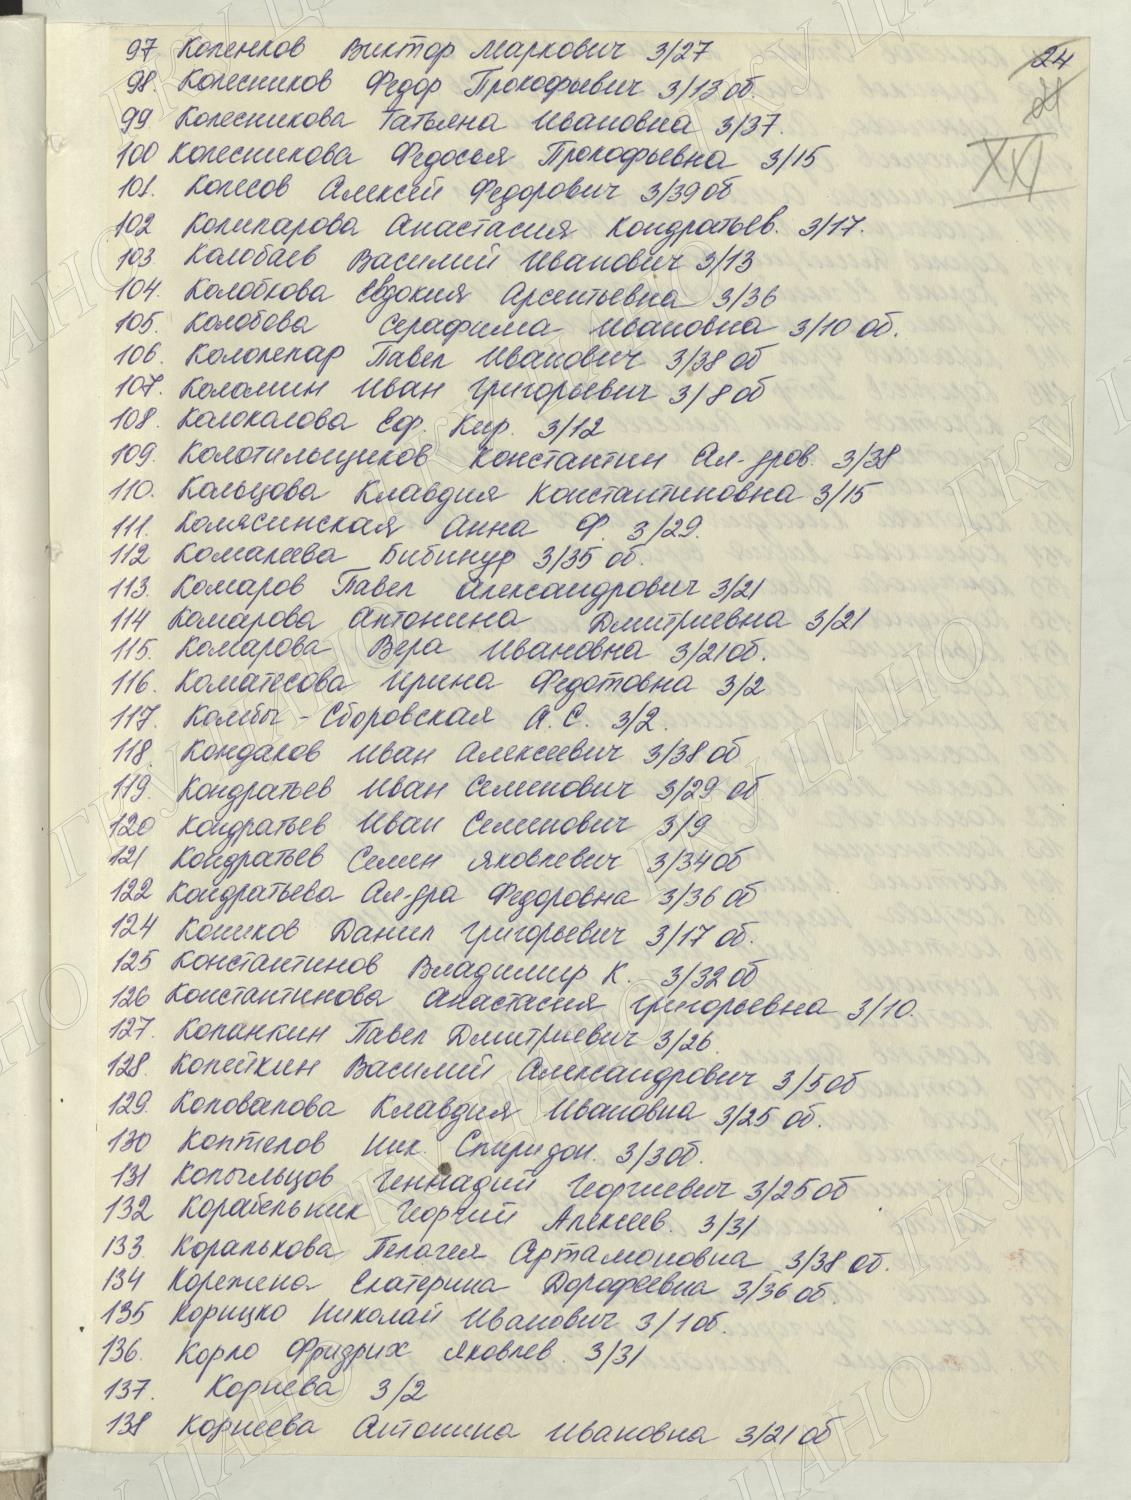 24
21
XXI
97 Коленков Виктор Маркович 3/27
98. Колесников Федор Прокофьевич 3/13 об.
99 Колесникова Татьяна Ивановна 3/37.
100 Колесникова Федосья Прокофьевна 3/15
101. Колесов Алексей Федорович 3/39 об
102 Колипарова Анастасия Кондратьев. 3/17.
103. Колобаев Василий Иванович 3/13
104. Колобкова Евдокия Арсентьевна 3/36
105. Колобова Серафима Ивановна 3/10 об.
106. Кололепар Павел Иванович 3/38 об
107. Коломин Иван Григорьевич 3/8 об
108. Колокалова Еф. Кир. 3/12
109. Колотильщиков Константин Ал-дров. 3/38
110. Кольцова Клавдия Константиновна 3/15
111. Колясинская Анна Ф. 3/29.
112 Комалеева Бибинур 3/35 об.
113. Комаров Павел Александрович 3/21
114 Комарова Антонина Дмитриевна 3/21
115. Комарова Вера Ивановна 3/21 об.
116. Коматесова Ирина Федотовна 3/2
117. Комбы-Сборовская А.С. 3/2.
118. Кондаков Иван Алексеевич 3/38 об
119. Кондратьев Иван Семенович 3/29 об
120 Кондратьев Иван Семенович 3/9
121 Кондратьев Семен Яковлевич 3/34 об
122 Кондратьева Ал-дра Федоровна 3/36 об
124 Коников Данил Григорьевич 3/17 об.
125 Константинов Владимир К. 3/32 об
126 Константинова Анастасия Григорьевна 3/10.
127. Копанкин Павел Дмитриевич 3/26.
128. Копейкин Василий Александрович 3/5 об
129. Коповалова Клавдия Ивановна 3/25 об.
130 Коптелов Ник. Спиридон. 3/3 об.
131 Копыльцов Геннадий Георгиевич 3/25 об
132 Корабельник Георгий Алексеев. 3/31
133. Коралькова Пелагея Артамоновна 3/38 об.
134 Корежена Екатерина Дорофеевна 3/36 об.
135 Корицко Николай Иванович 3/1 об.
136. Корло Фридрих Яковлев. 3/31
137. Корнева 3/2
138 Корнеева Антонина Ивановна 3/21 об